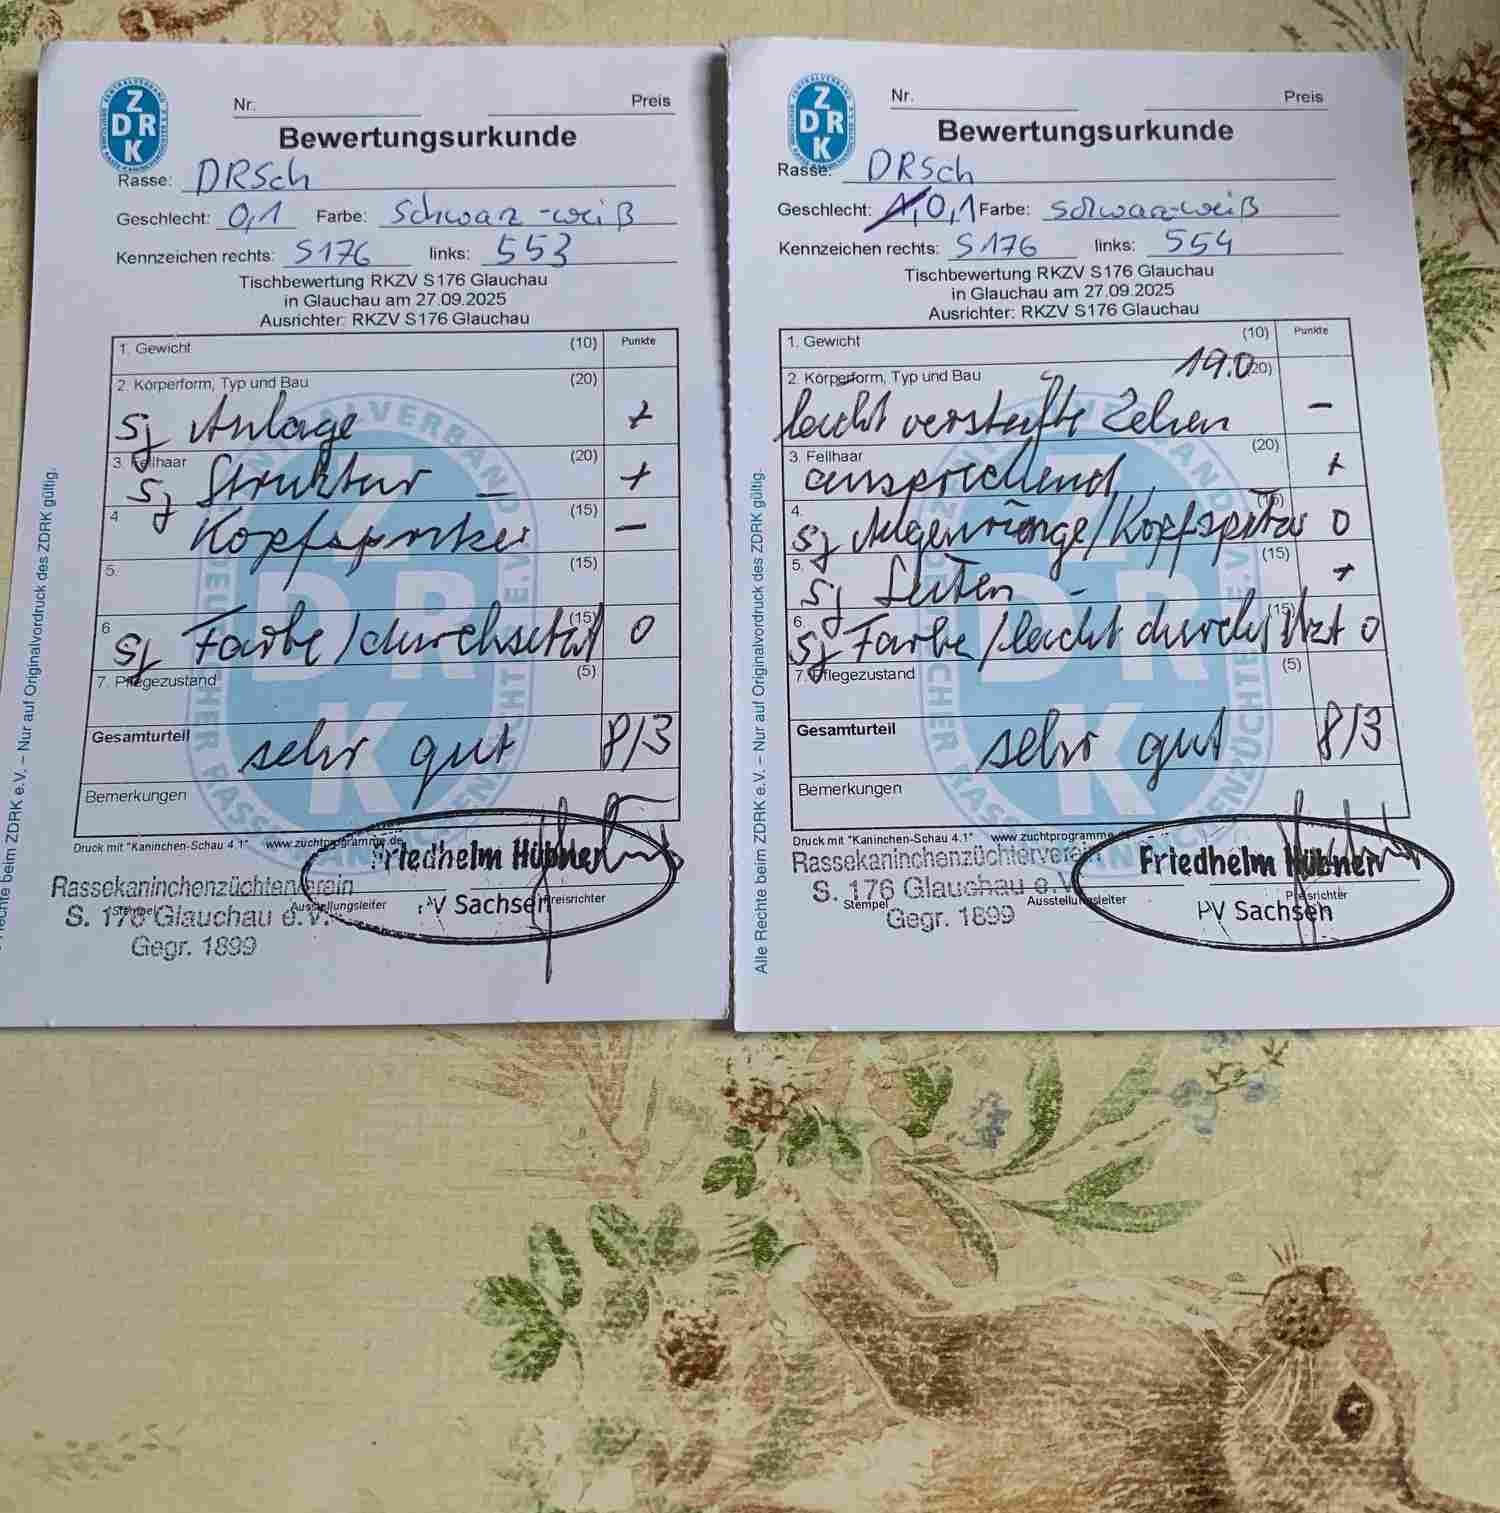 ZDRK
Nr. Preis
Bewertungsurkunde
Rasse: DRSch
Geschlecht: 0,1 Farbe: schwarz-weiß
Kennzeichen rechts: S176 links: 553
Tischbewertung RKZV S176 Glauchau
in Glauchau am 27.09.2025
Ausrichter: RKZV S176 Glauchau
1. Gewicht (10) Punkte
2. Körperform, Typ und Bau (20)
sg Anlage +
3. Fellhaar (20)
sg Struktur – +
4 (15)
Kopfspritzer –
5. (15)
6 (15)
sg Farbe/durchsetzt 0
7. Pflegezustand (5)
Gesamturteil sehr gut 8/3
Bemerkungen
Druck mit "Kaninchen-Schau 4.1" www.zuchtprogramme.de
Friedhelm Hübner
Rassekaninchenzüchterverein
Stempel Ausstellungsleiter Preisrichter
S. 176 Glauchau e.V. LV Sachsen
Gegr. 1899
Alle Rechte beim ZDRK e.V. – Nur auf Originalvordruck des ZDRK gültig.
ZDRK
Nr. Preis
Bewertungsurkunde
Rasse: DRSch
Geschlecht: 1,0,1 Farbe: schwarz-weiß
Kennzeichen rechts: S176 links: 554
Tischbewertung RKZV S176 Glauchau
in Glauchau am 27.09.2025
Ausrichter: RKZV S176 Glauchau
1. Gewicht (10) Punkte
2. Körperform, Typ und Bau 19.0 (20)
leicht versteifte Zehen –
3. Fellhaar (20)
ansprechend +
4. (15)
sg Augenringe/Kopfspritzer 0
5. (15)
sg Seiten – +
6. (15)
sg Farbe/leicht durchsetzt 0
7. Pflegezustand (5)
Gesamturteil sehr gut 8/3
Bemerkungen
Druck mit "Kaninchen-Schau 4.1" www.zuchtprogramme.de
Rassekaninchenzüchterverein Friedhelm Hübner
S. 176 Glauchau e.V.
Stempel Ausstellungsleiter Preisrichter
Gegr. 1899 LV Sachsen
Alle Rechte beim ZDRK e.V. – Nur auf Originalvordruck des ZDRK gültig.